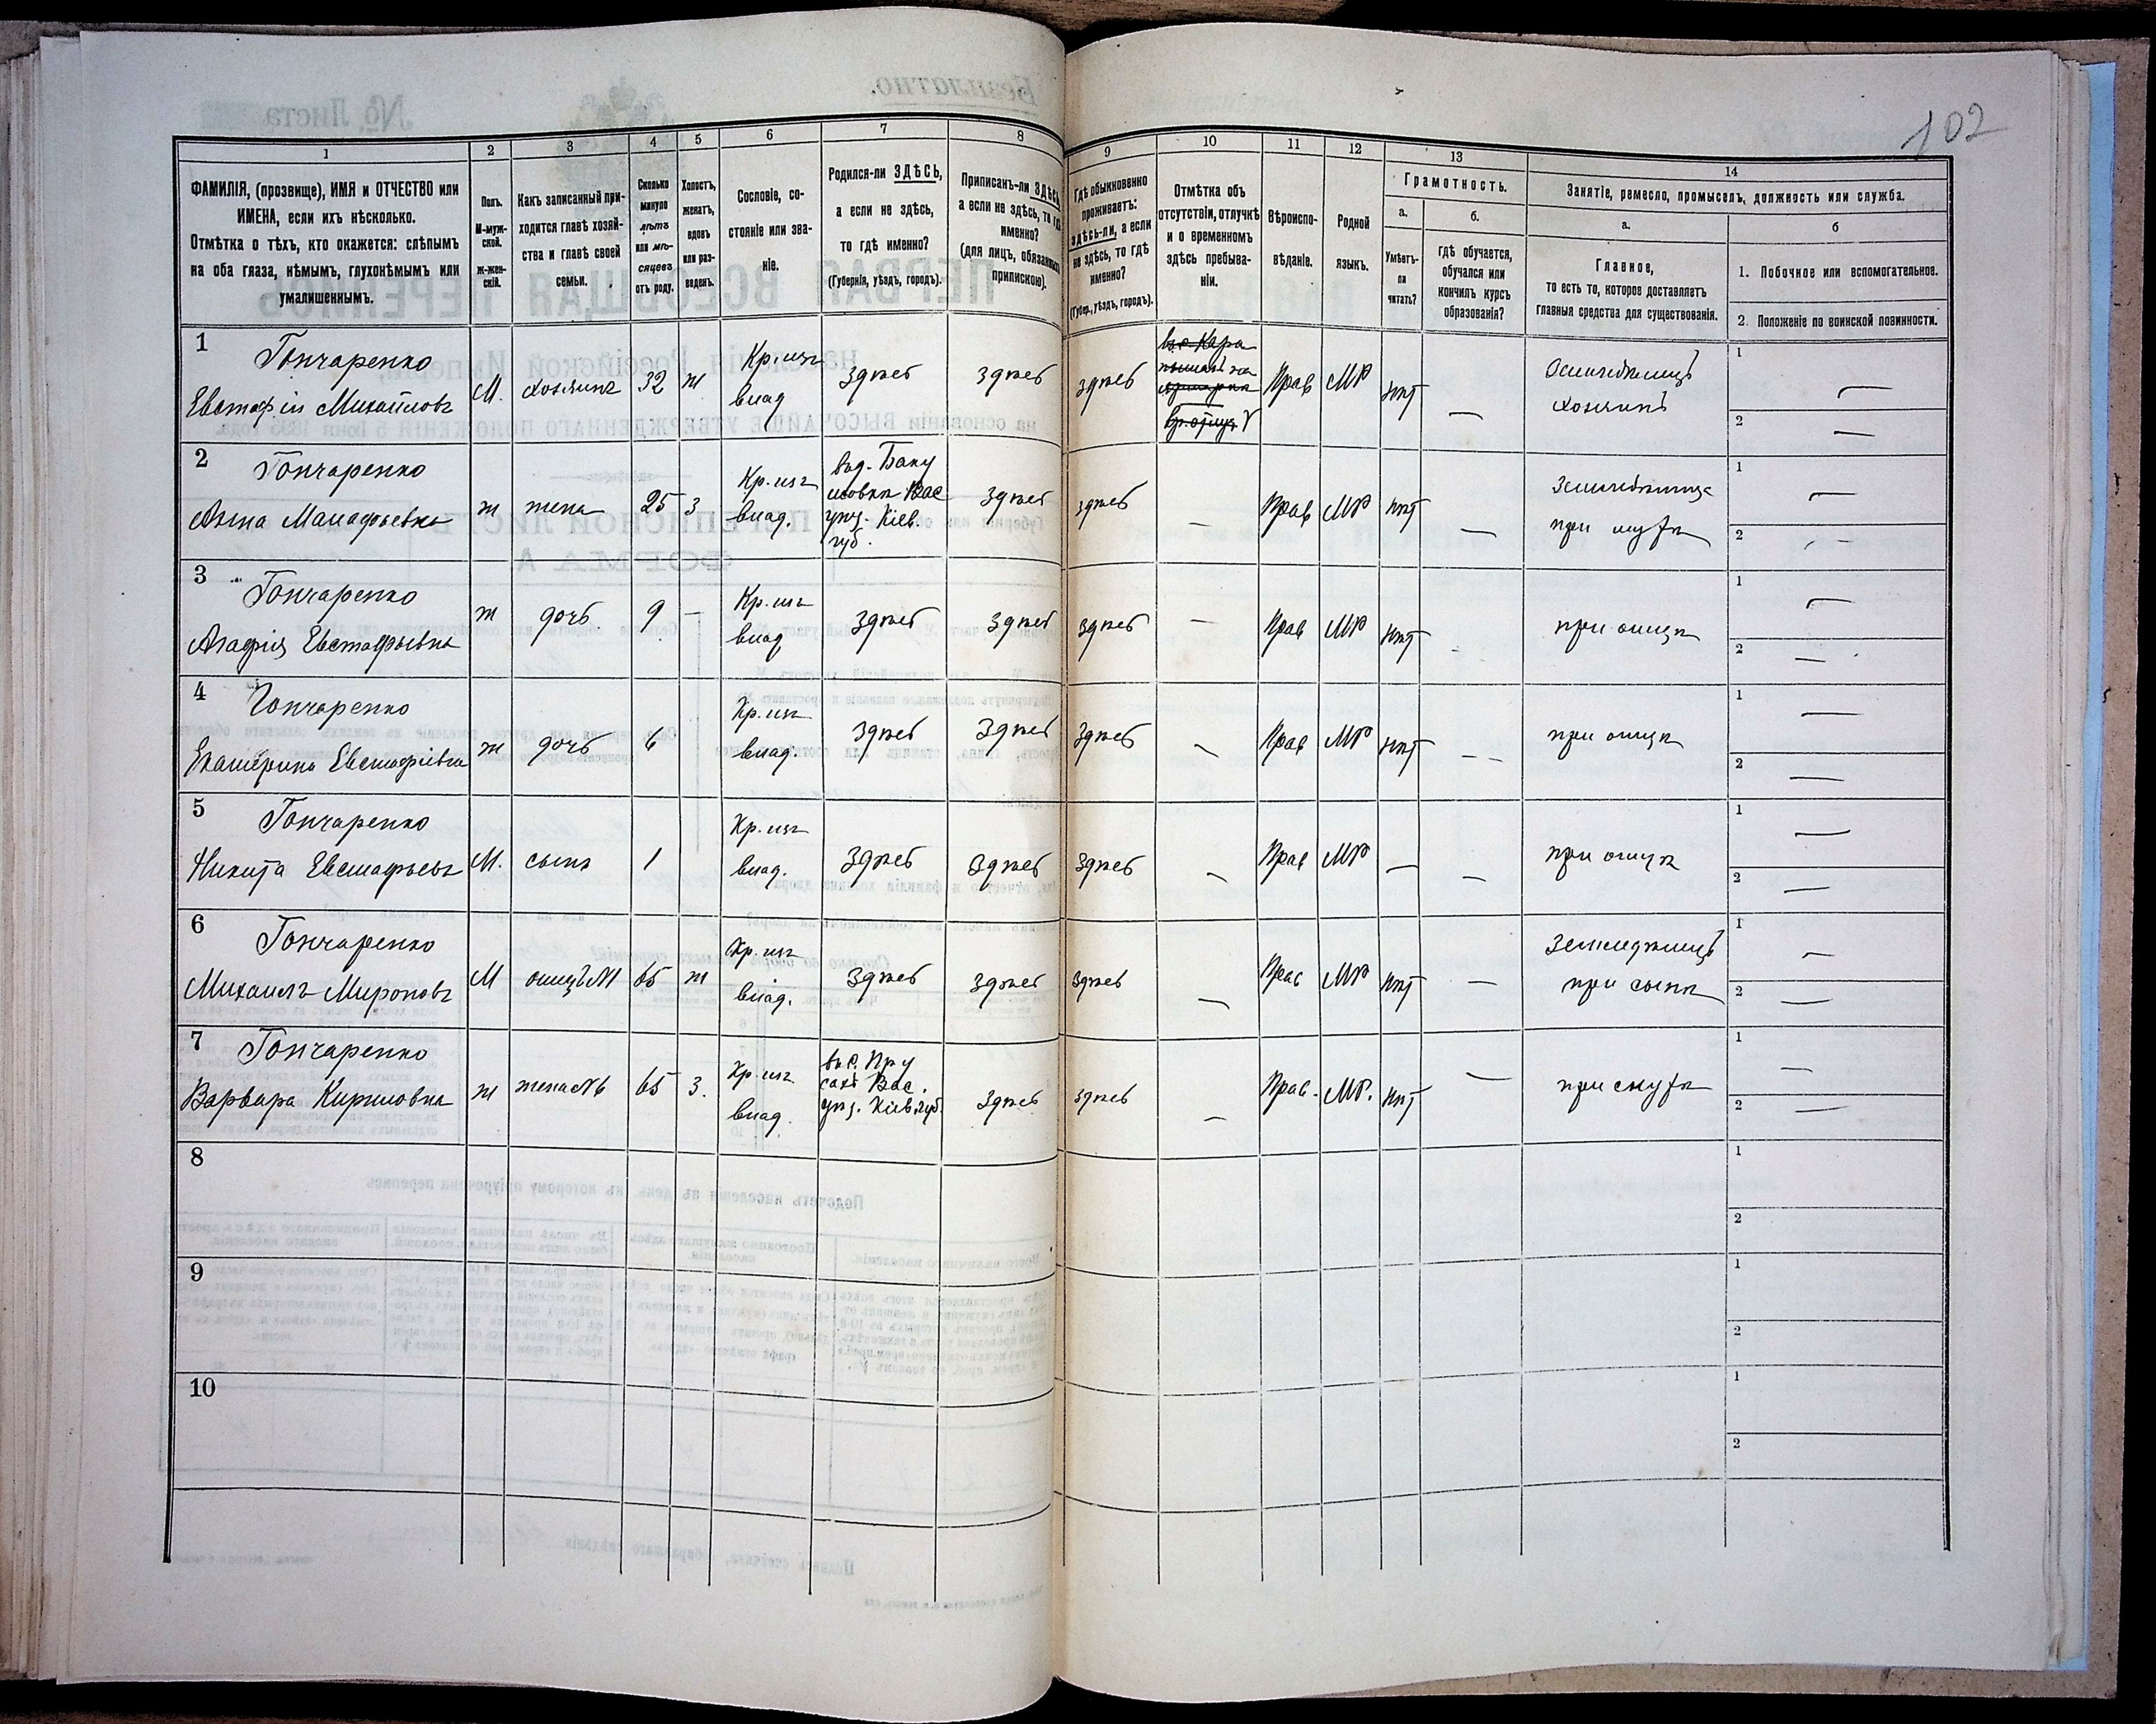 102
1
2
3
4
5
6
7
8
9
10
11
12
13
14
ФАМИЛІЯ, (прозвище), ИМЯ и ОТЧЕСТВО или
ИМЕНА, если ихъ нѣсколько.
Отмѣтка о тѣхъ, кто окажется: слѣпымъ
на оба глаза, нѣмымъ, глухонѣмымъ или
умалишеннымъ.
Полъ.
М-муж-
ской.
Ж-жен-
скій.
Какъ записанный при-
ходится главѣ хозяй-
ства и главѣ своей
семьи.
Сколько
минуло
лѣтъ
или мѣ-
сяцевъ
отъ роду.
Холостъ,
женатъ,
вдовъ
или раз-
веденъ.
Сословіе, со-
стояніе или зва-
ніе.
Родился-ли ЗДѢСЬ,
а если не здѣсь,
то гдѣ именно?
(Губернія, уѣздъ, городъ).
Приписанъ-ли ЗДѢСЬ,
а если не здѣсь, то гдѣ
именно?
(для лицъ, обязанныхъ
припискою).
Гдѣ обыкновенно
проживаетъ:
здѣсь-ли, а если
не здѣсь, то гдѣ
именно?
(Губер., уѣздъ, городъ).
Отмѣтка объ
отсутствіи, отлучкѣ
и о временномъ
здѣсь пребыва-
ніи.
Вѣроиспо-
вѣданіе.
Родной
языкъ.
Грамотность.
а.
Умѣетъ-
ли
читать?
б.
гдѣ обучается,
обучался или
кончилъ курсъ
образованія?
Занятіе, ремесло, промыселъ, должность или служба.
а.
Главное,
то есть то, которое доставляетъ
главныя средства для существованія.
б
1. Побочное или вспомогательное.
2. Положеніе по воинской повинности.
1
Гончаренко
Евстафій Михайловъ
М.
хозяинъ
32
ж
Кр. изъ
влад
здѣсь
здѣсь
здѣсь
Прав
МР
нѣтъ
—
Земледѣлецъ
хозяинъ
1 —
2 —
2
Гончаренко
Анна Манафьевна
ж
жена
25
3
Кр. изъ
влад.
въ д. Баку
мовкѣ Вас
уѣз. Кіев.
губ.
здѣсь
здѣсь
—
Прав
МР
нѣтъ
—
Земледѣлица
при мужѣ
1 —
2 —
3
Гончаренко
Агафія Евстафьевна
ж
дочь
9
—
Кр. изъ
влад
здѣсь
здѣсь
здѣсь
—
Прав
МР
нѣтъ
-
при отцѣ
1 —
2 —
4
Гончаренко
Екатерина Евстафіевна
ж
дочь
6
Кр. изъ
влад.
здѣсь
здѣсь
здѣсь
—
Прав
МР
нѣтъ
—
при отцѣ
1 —
2 —
5
Гончаренко
Никита Евстафьевъ
М.
сынъ
1
Кр. изъ
влад.
здѣсь
здѣсь
здѣсь
—
Прав
МР
—
—
при отцѣ
1 —
2 —
6
Гончаренко
Михаилъ Мироновъ
М
отецъ №1
65
ж
Кр. изъ
влад.
здѣсь
здѣсь
здѣсь
—
Прав
МР
нѣтъ
—
Земледѣлецъ
при сынѣ
1 —
2 —
7
Гончаренко
Варвара Кириловна
ж
жена №6
65
3.
Кр. изъ
влад.
въ с. Пру
сахъ Вас.
уѣз. Кіев. губ.
здѣсь
здѣсь
—
Прав.
МР.
нѣтъ
—
при мужѣ
1 —
2 —
8
1
2
9
1
2
10
1
2